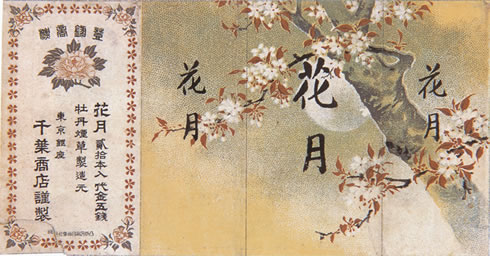 登錄商標
花月 貳拾本入 代金五錢
牡丹煙草製造元
東京銀座
千葉商店謹製
花月
花月
花月